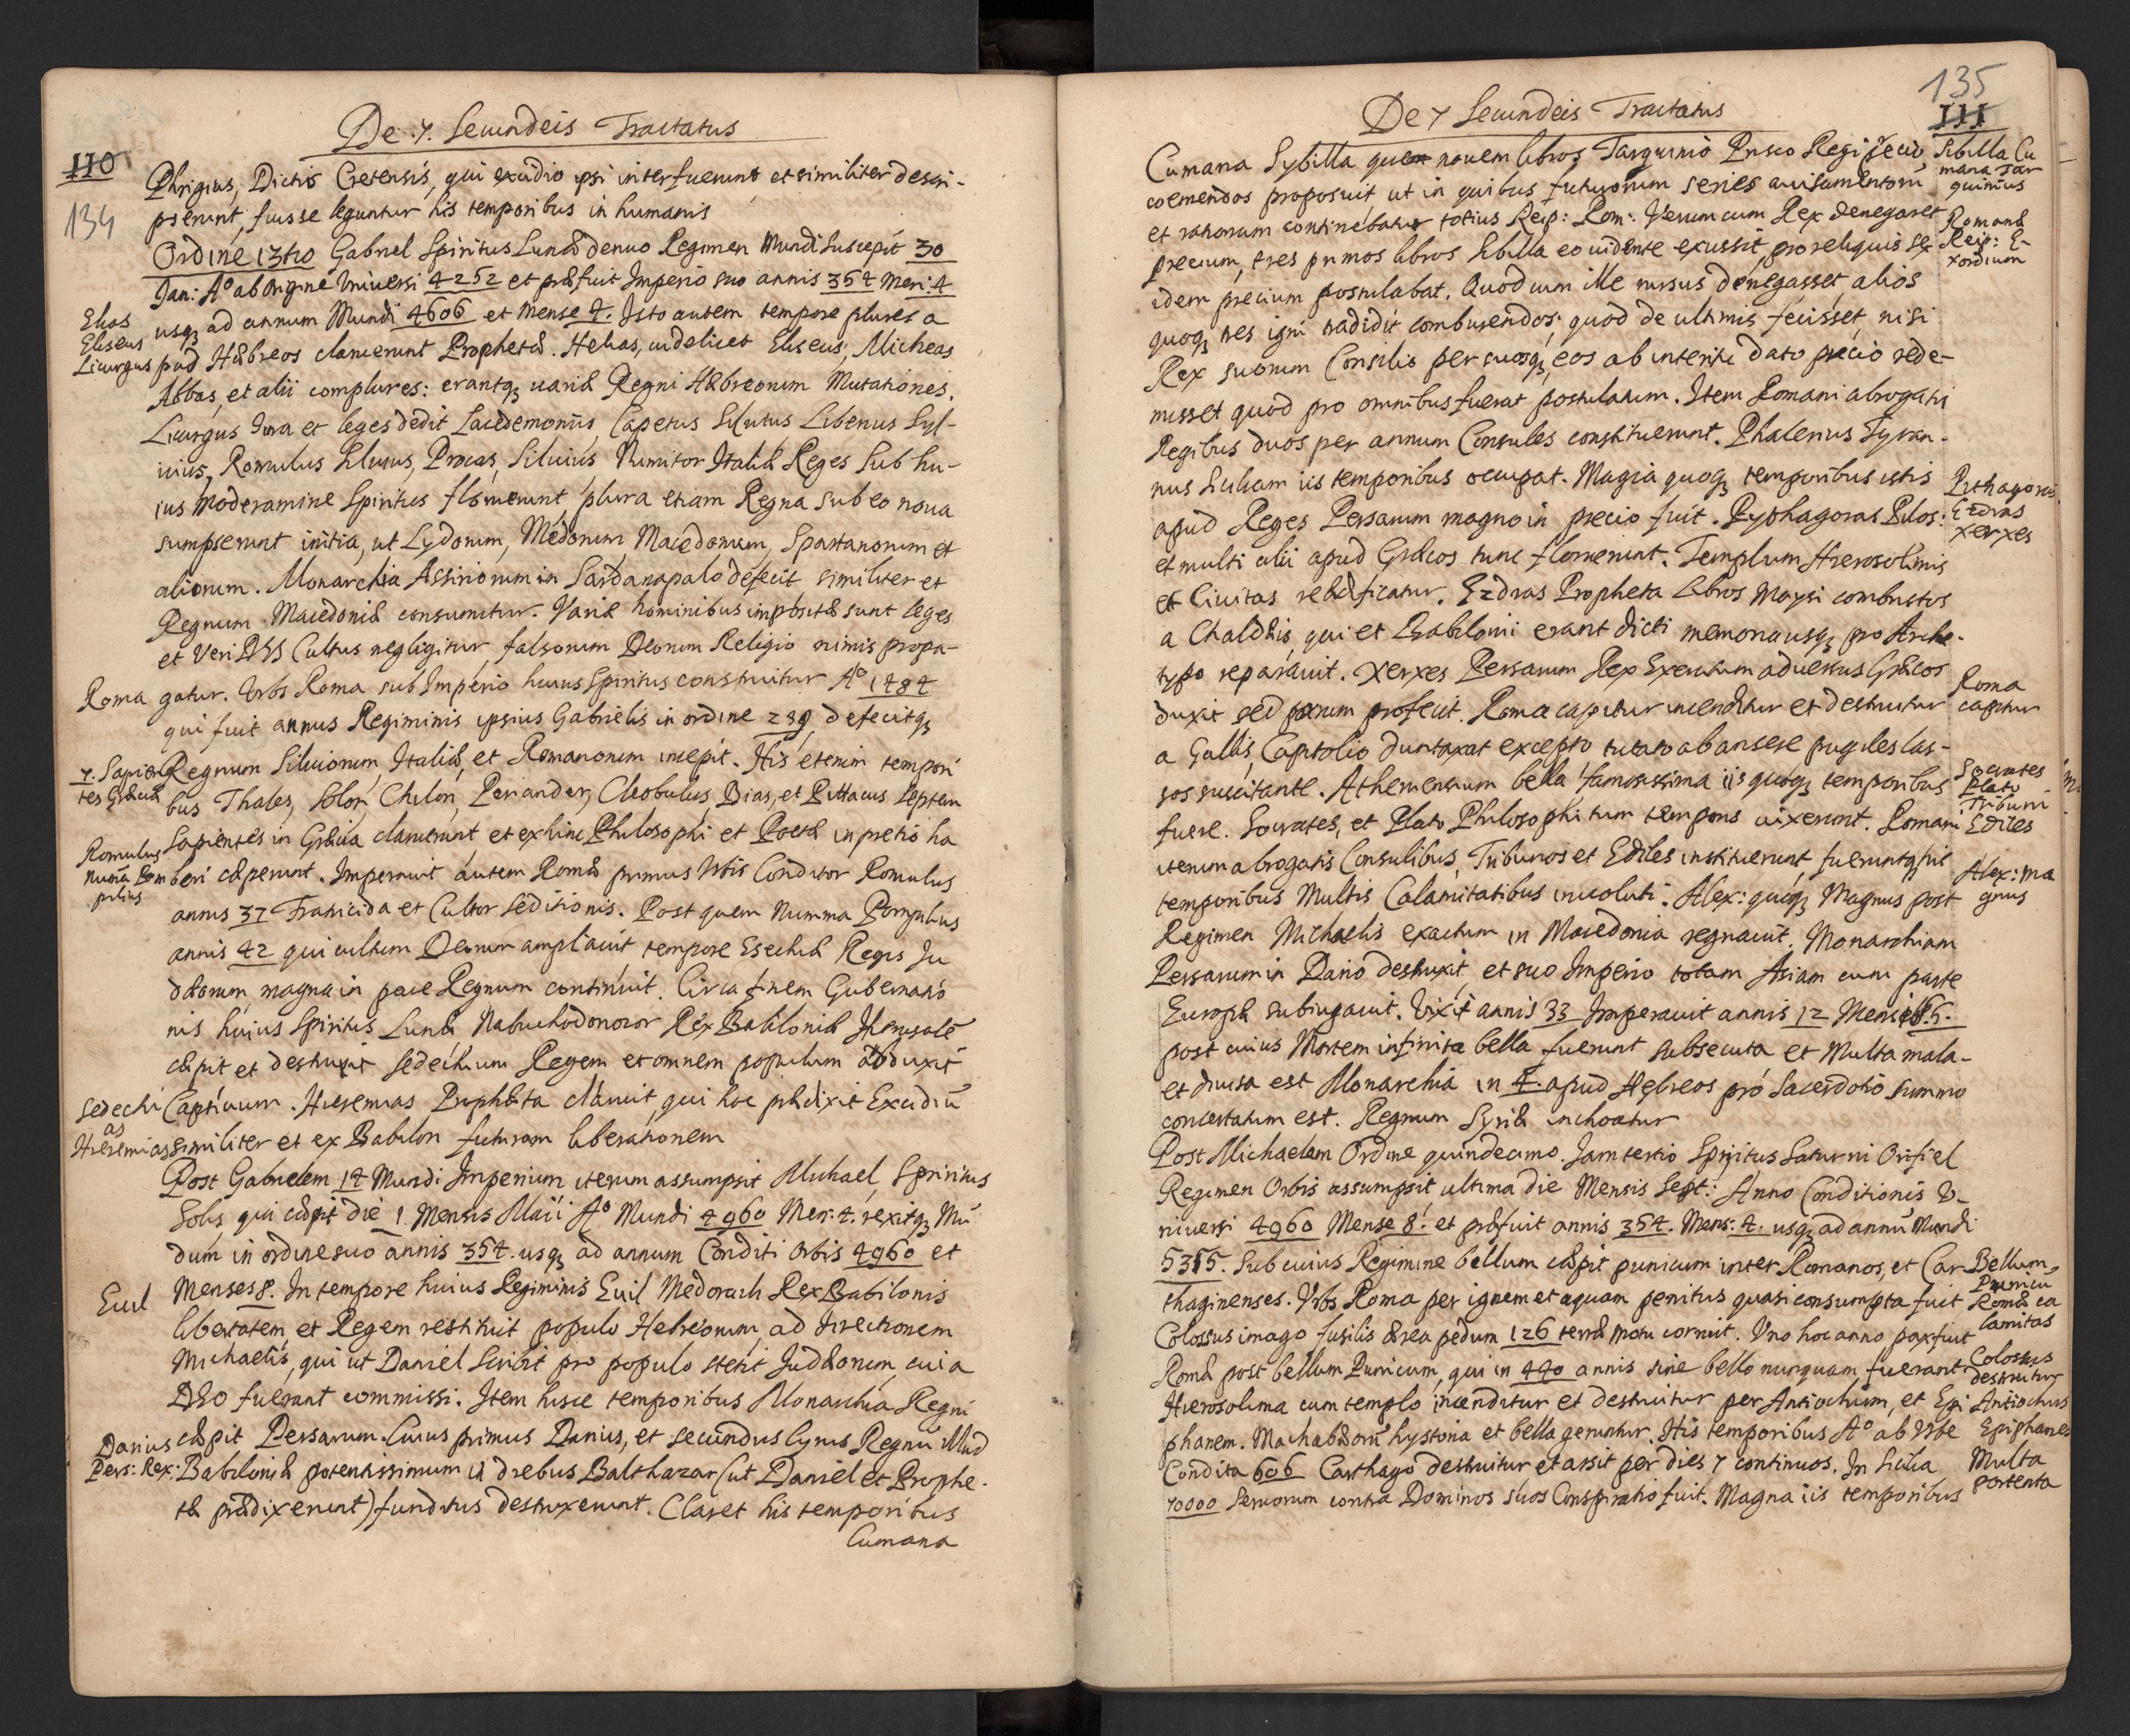 De .7. Secundeis Tractatus
110
134
Phrigius, Dictis Cretensis, qui excidio ipsi interfuerunt et similiter descri-
pserunt, fuisse leguntur his temporibus in humanis
Ordine 13tio Gabriel Spiritus Lunæ denuo Regimen Mundi Suscepit 30
Jan: Aº ab Origine Universi 4252 et præfuit Imperio suo annis 354 Men: 4
usq3 ad annum Mundi 4606 et Mense 4. Isto autem tempore plures a
Elias
Eliseus
Licurgus
pud Hæbreos claruerunt Prophetæ. Helias, videlicet Eliseus, Micheas
Abbas, et alii complures: erantq3 uariæ Regni Hæbreorum Mutationes.
Licurgus Jura et leges dedit Lacedemoniis, Capetus Silutus Liberius Syl-
uius, Romulus Siluius, Procas, Siluius Numitor Italiæ Reges Sub hu-
ius Moderamine Spiritus floruerunt, plura etiam Regna sub eo noua
sumpserunt initia, ut Lydorum, Medorum, Macedonum, Spartanorum et
aliorum. Monarchia Assiriorum in Sardanapalo defecit similiter et
Regnum Macedoniæ consumitur. Variæ hominibus impositæ sunt leges
et Veri DEI Cultus negligitur, falsorum Deorum Religio nimis propa-
Roma
gatur. Urbs Roma sub Imperio huius Spiritus construitur Aº 1484
qui fuit annus Regiminis ipsius Gabrielis in ordine 239 defecitq3
7. Sapien
tes Græciæ
Regnum Siluiorum, Italiæ, et Romanorum incepit. His etenim tempori
bus Thales, Solon, Chilon, Periander, Cleobulus, Bias, et Pittacus septem
Sapientes in Græcia claruerunt et exhinc Philosophi et Poetæ in pretio ha
Romulus
Numa Pom
pilius
beri cæperunt. Imperauit autem Romæ primus Urbis Conditor Romulus
annis 37 Fratricida et Cultor Seditionis. Post quem Numma Pompilius
annis 42 qui cultum Deorum ampliauit tempore Esechiæ Regis Ju
dæorum, magna in pace Regnum continuit. Circa finem Gubernatio
nis huius Spiritus Lunæ Nabuchodonozor Rex Babiloniæ Jherusalē
cæpit et destruxit Sedechium Regem et omnem populum abduxit
Sedechi
as
Hieremias
Captiuum. Hieremias Prophæta claruit, qui hoc prædixit Excidiū
similiter et ex Babilon futuram liberationem
Post Gabrielem 14 Mundi Imperium iterum assumpsit Michael, Spriritus
Solis qui cæpit die 1. Mensis Maii Aº Mundi 4960 Men: 4. rexitq3 Mū
dum in ordine suo annis 354. usq3 ad annum Conditi Orbis 4960 et
Menses 8. In tempore huius Regiminis Euil Medorach Rex Babilonis
Euil
libertatem, et Regem restituit populo Hebreorum, ad directionem
Michaelis, qui ut Daniel Scribit pro populo stetit Judæorum, cui a
DEO fuerant commissi. Item hisce temporibus Monarchia Regni
Darius
Pers: Rex:
cæpit Persarum. Cuius primus Darius, et secundus Cyrus Regnū illud
Babiloniæ potentissimum in diebus Balthazar (ut Daniel et Prophe-
tæ prædixerunt) funditus destruxerunt. Claret his temporibus
Cumana
De 7 Secundeis Tractatus
135
111
Cumana Sybilla quæ nouem libros Tarquinio Prisco Regi precio,
Sibilla Cu
mana Tar
quinius
coemendos proposuit ut in quibus futurorum series auisamentorū
et rationum continebatur totius Reip: Rom: Verum cum Rex denegaret
Romanæ
Reip: E-
xordium
precium, tres primos libros Sibilla eo uidente exussit, pro reliquis sex
idem precium postulabat. Quod cum ille rursus denegasset, alios
quoq3 tres igni tradidit comburendos: quod de ultimis fecisset, nisi
Rex suorum Consilio persuasq3, eos ab interitu dato precio rede-
misset quod pro omnibus fuerat postulatum. Item Romani abrogatis
Regibus duos per annum Consules constituerunt. Phalerius Tyran-
nus Siciliam iis temporibus occupat. Magia quoq3 temporibus istis
apud Reges Persarum magno in precio fuit. Pythagoras Pilos:
Pithagoras
Ezdras
Xerxes
et multi alii apud Græcos tunc floruerunt. Templum Hierosolimis
et Ciuitas reædificatur. Ezdras Propheta Libros Moysi combustos
a Chaldæis, qui et Babilonii erant dicti memoria usq3 pro Arche-
typo reparauit. Xerxes Persarum Rex Exercitum aduersus Græcos
duxit sed parum profecit. Roma capitur incenditur et destruitur
Roma
capitur
a Gallis, Capitolio duntaxat excepto tutato ab ansere pugiles las-
sos suscitante. Atheniensium bella famosissima iis quoq3 temporibus
Socrates
Plato
Tribuni
Ediles
fuere. Socrates, et Plato Philosophi tum temporis uixerunt. Romani
iterum abrogatis Consulibus, Tribunos et Ediles instituerunt, fueruntq3 his
temporibus Multis Calamitatibus inuoluti. Alex: quoq3 Magnus post
Alex: Ma
gnus
Regimen Michaelis exactum in Macedonia regnauit, Monarchiam
Persarum in Dario destruxit, et suo Imperio totam Asiam cum parte
Europæ subiugauit. Vixit annis 33 Imperauit annis 12 Mensib9. 6.
post cuius Mortem infinita bella fuerunt subsecuta et Multa mala-
et diuisa est Monarchia in 4. apud Hebreos pro Sacerdotio summo
concertatum est. Regnum Syriæ inchoatur
Post Michaelem Ordine quindecimo. Jam tertio Spiritus Saturni Orifiel
Regimen Orbis assumpsit ultima die Mensis Sept: Anno Conditionis U-
niuersi 4960 Mense 8. et præfuit annis 354. Mens: 4. usq3 ad annū Mundi
5315. Sub cuius Regimine bellum cæpit punicum inter Romanos, et Car-
Bellum
Punicu
thaginenses. Urbs Roma per ignem et aquam penitus quasi consumpta fuit
Romæ ca
lamitas
Colossus imago fusilis ærea pedum 126 terræ motu corruit. Uno hoc anno pax fuit
Romæ post bellum Punicum, qui in 440 annis sine bello nunquam fuerant
Colossus
destruitur
Hierosolima cum templo incenditur et destruitur per Antiochum, et Epi
Antiochus
Epiphanes
phanem. Machabæorū hystoria et bella geruntur. His temporibus Aº ab Urbe
Condita 606 Carthago destruitur et arsit per dies 7 continuos. In Sicilia
Multa
portenta
70000 Seruorum contra Dominos suos Conspiratio fuit. Magna iis temporibus